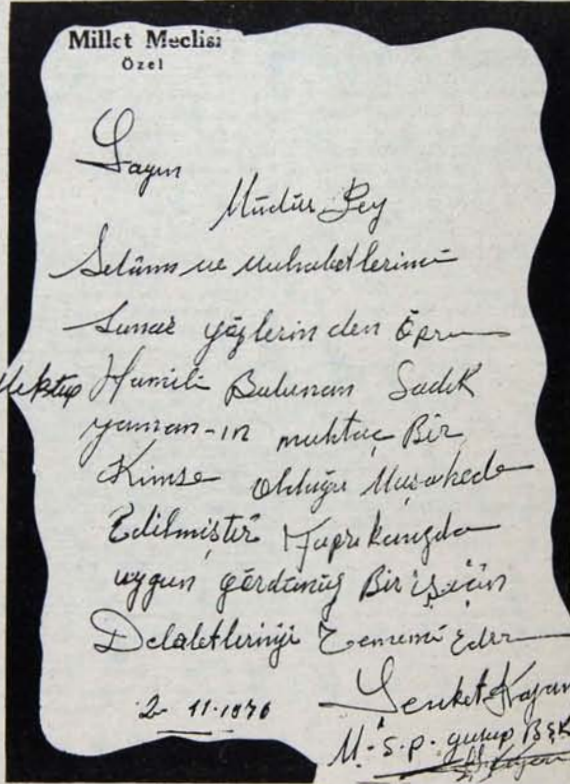 Millet Meclisi
Özel
Sayın
Müdür Bey
Selâm ve muhabetlerimi
Sunar gözlerinden öperim
Mektup Hamili Bulunan Sadık
yaman-ın muhtaç Bir
Kimse olduğu Muşahede
Edilmiştir
uygun gördünüz Bir iş için
Delaletlerinizi Temenni Eder
2- 11-1976
Şevket Kazan
M.S.P. gurup BŞK